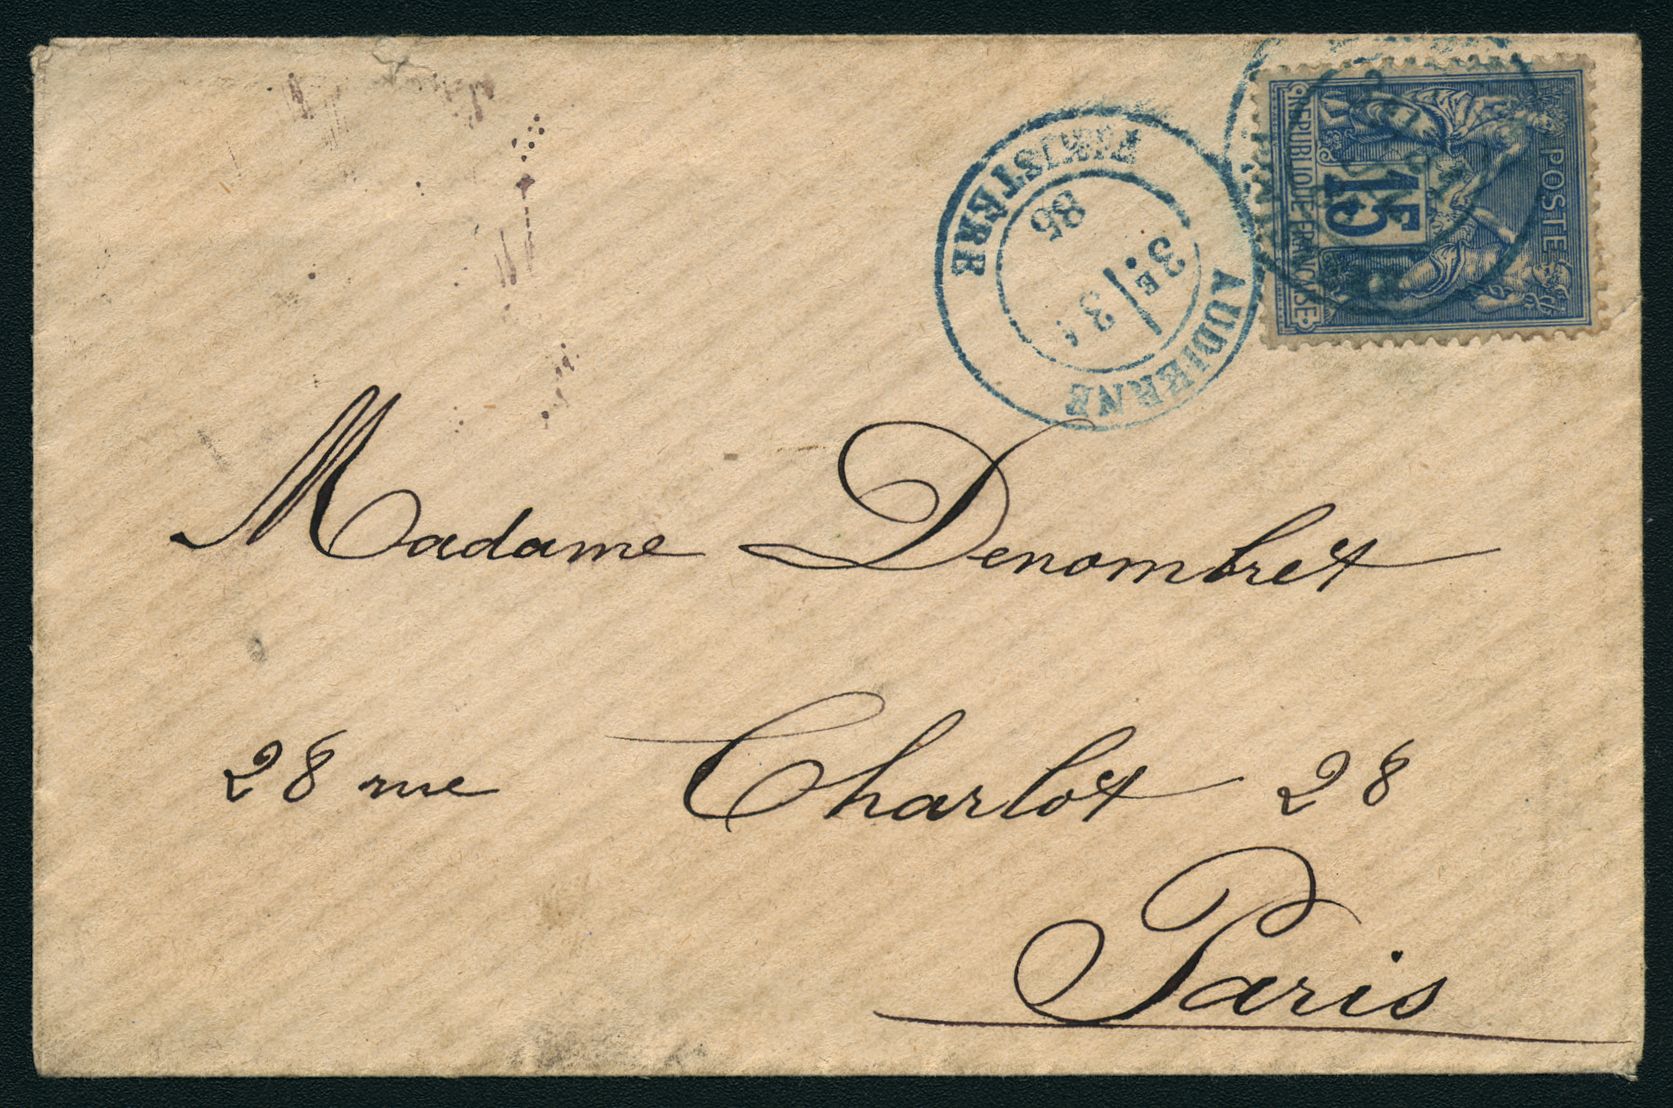 POSTE
15
REPUBLIQUE FRANÇAISE
AUDIERNE
3E
3
85
FINISTÈRE
Madame Denombret
28 rue Charlot 28
Paris